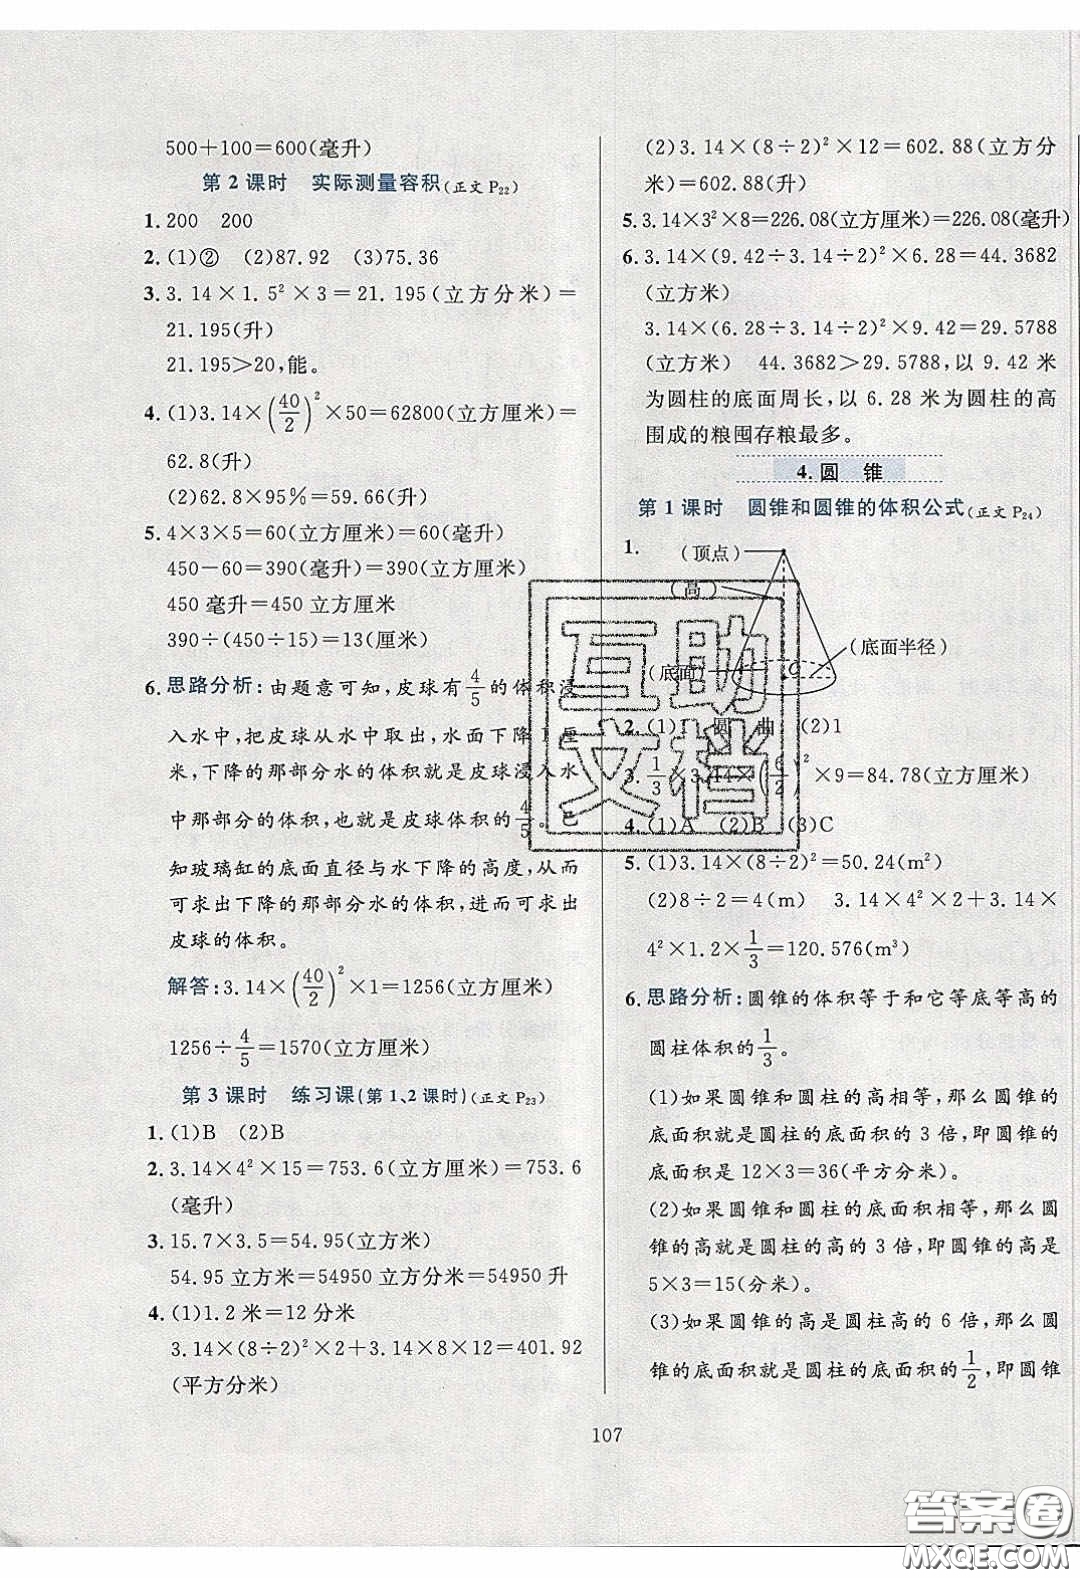 500+100=600(毫升)
第2课时 实际测量容积(正文P22)
1. 200 200
2. (1)② (2)87.92 (3)75.36
3. 3.14×1.5²×3=21.195(立方分米)=
21.195(升)
21.195>20,能。
4. (1)3.14×(40/2)²×50=62800(立方厘米)=
62.8(升)
(2)62.8×95%=59.66(升)
5. 4×3×5=60(立方厘米)=60(毫升)
450-60=390(毫升)=390(立方厘米)
450毫升=450立方厘米
390÷(450÷15)=13(厘米)
6. 思路分析:由题意可知,皮球有4/5的体积浸
入水中,把皮球从水中取出,水面下降1厘
米,下降的那部分水的体积就是皮球浸入水
中那部分的体积,也就是皮球体积的4/5。已
知玻璃缸的底面直径与水下降的高度,从而
可求出下降的那部分水的体积,进而可求出
皮球的体积。
解答:3.14×(40/2)²×1=1256(立方厘米)
1256÷4/5=1570(立方厘米)
第3课时 练习课(第1、2课时)(正文P23)
1. (1)B (2)B
2. 3.14×4²×15=753.6(立方厘米)=753.6
(毫升)
3. 15.7×3.5=54.95(立方米)
54.95立方米=54950立方分米=54950升
4. (1)1.2米=12分米
3.14×(8÷2)²×2+3.14×8×12=401.92
(平方分米)
(2)3.14×(8÷2)²×12=602.88(立方分
米)=602.88(升)
5. 3.14×3²×8=226.08(立方厘米)=226.08(毫升)
6. 3.14×(9.42÷3.14÷2)²×6.28=44.3682
(立方米)
3.14×(6.28÷3.14÷2)²×9.42=29.5788
(立方米) 44.3682>29.5788,以9.42米
为圆柱的底面周长,以6.28米为圆柱的高
围成的粮囤存粮最多。
4.圆 锥
第1课时 圆锥和圆锥的体积公式(正文P24)
1. (顶点)
(高)
(底面半径)
(底面)
O
2. (1)1 圆 曲 (2)1
3. 1/3×3.14×(6/2)²×9=84.78(立方厘米)
4. (1)A (2)B (3)C
5. (1)3.14×(8÷2)²=50.24(m²)
(2)8÷2=4(m) 3.14×4²×2+3.14×
4²×1.2×1/3=120.576(m³)
6. 思路分析:圆锥的体积等于和它等底等高的
圆柱体积的1/3。
(1)如果圆锥和圆柱的高相等,那么圆锥的
的底面积就是圆柱的底面积的3倍,即圆锥的
的底面积是12×3=36(平方分米)。
(2)如果圆锥和圆柱的底面积相等,那么圆
锥的高就是圆柱的高的3倍,即圆锥的高是
5×3=15(分米)。
(3)如果圆锥的高是圆柱高的6倍,那么圆
锥的底面积就是圆柱的底面积的1/2,即圆锥
107
互助
文档
答案圈
MXQE.COM